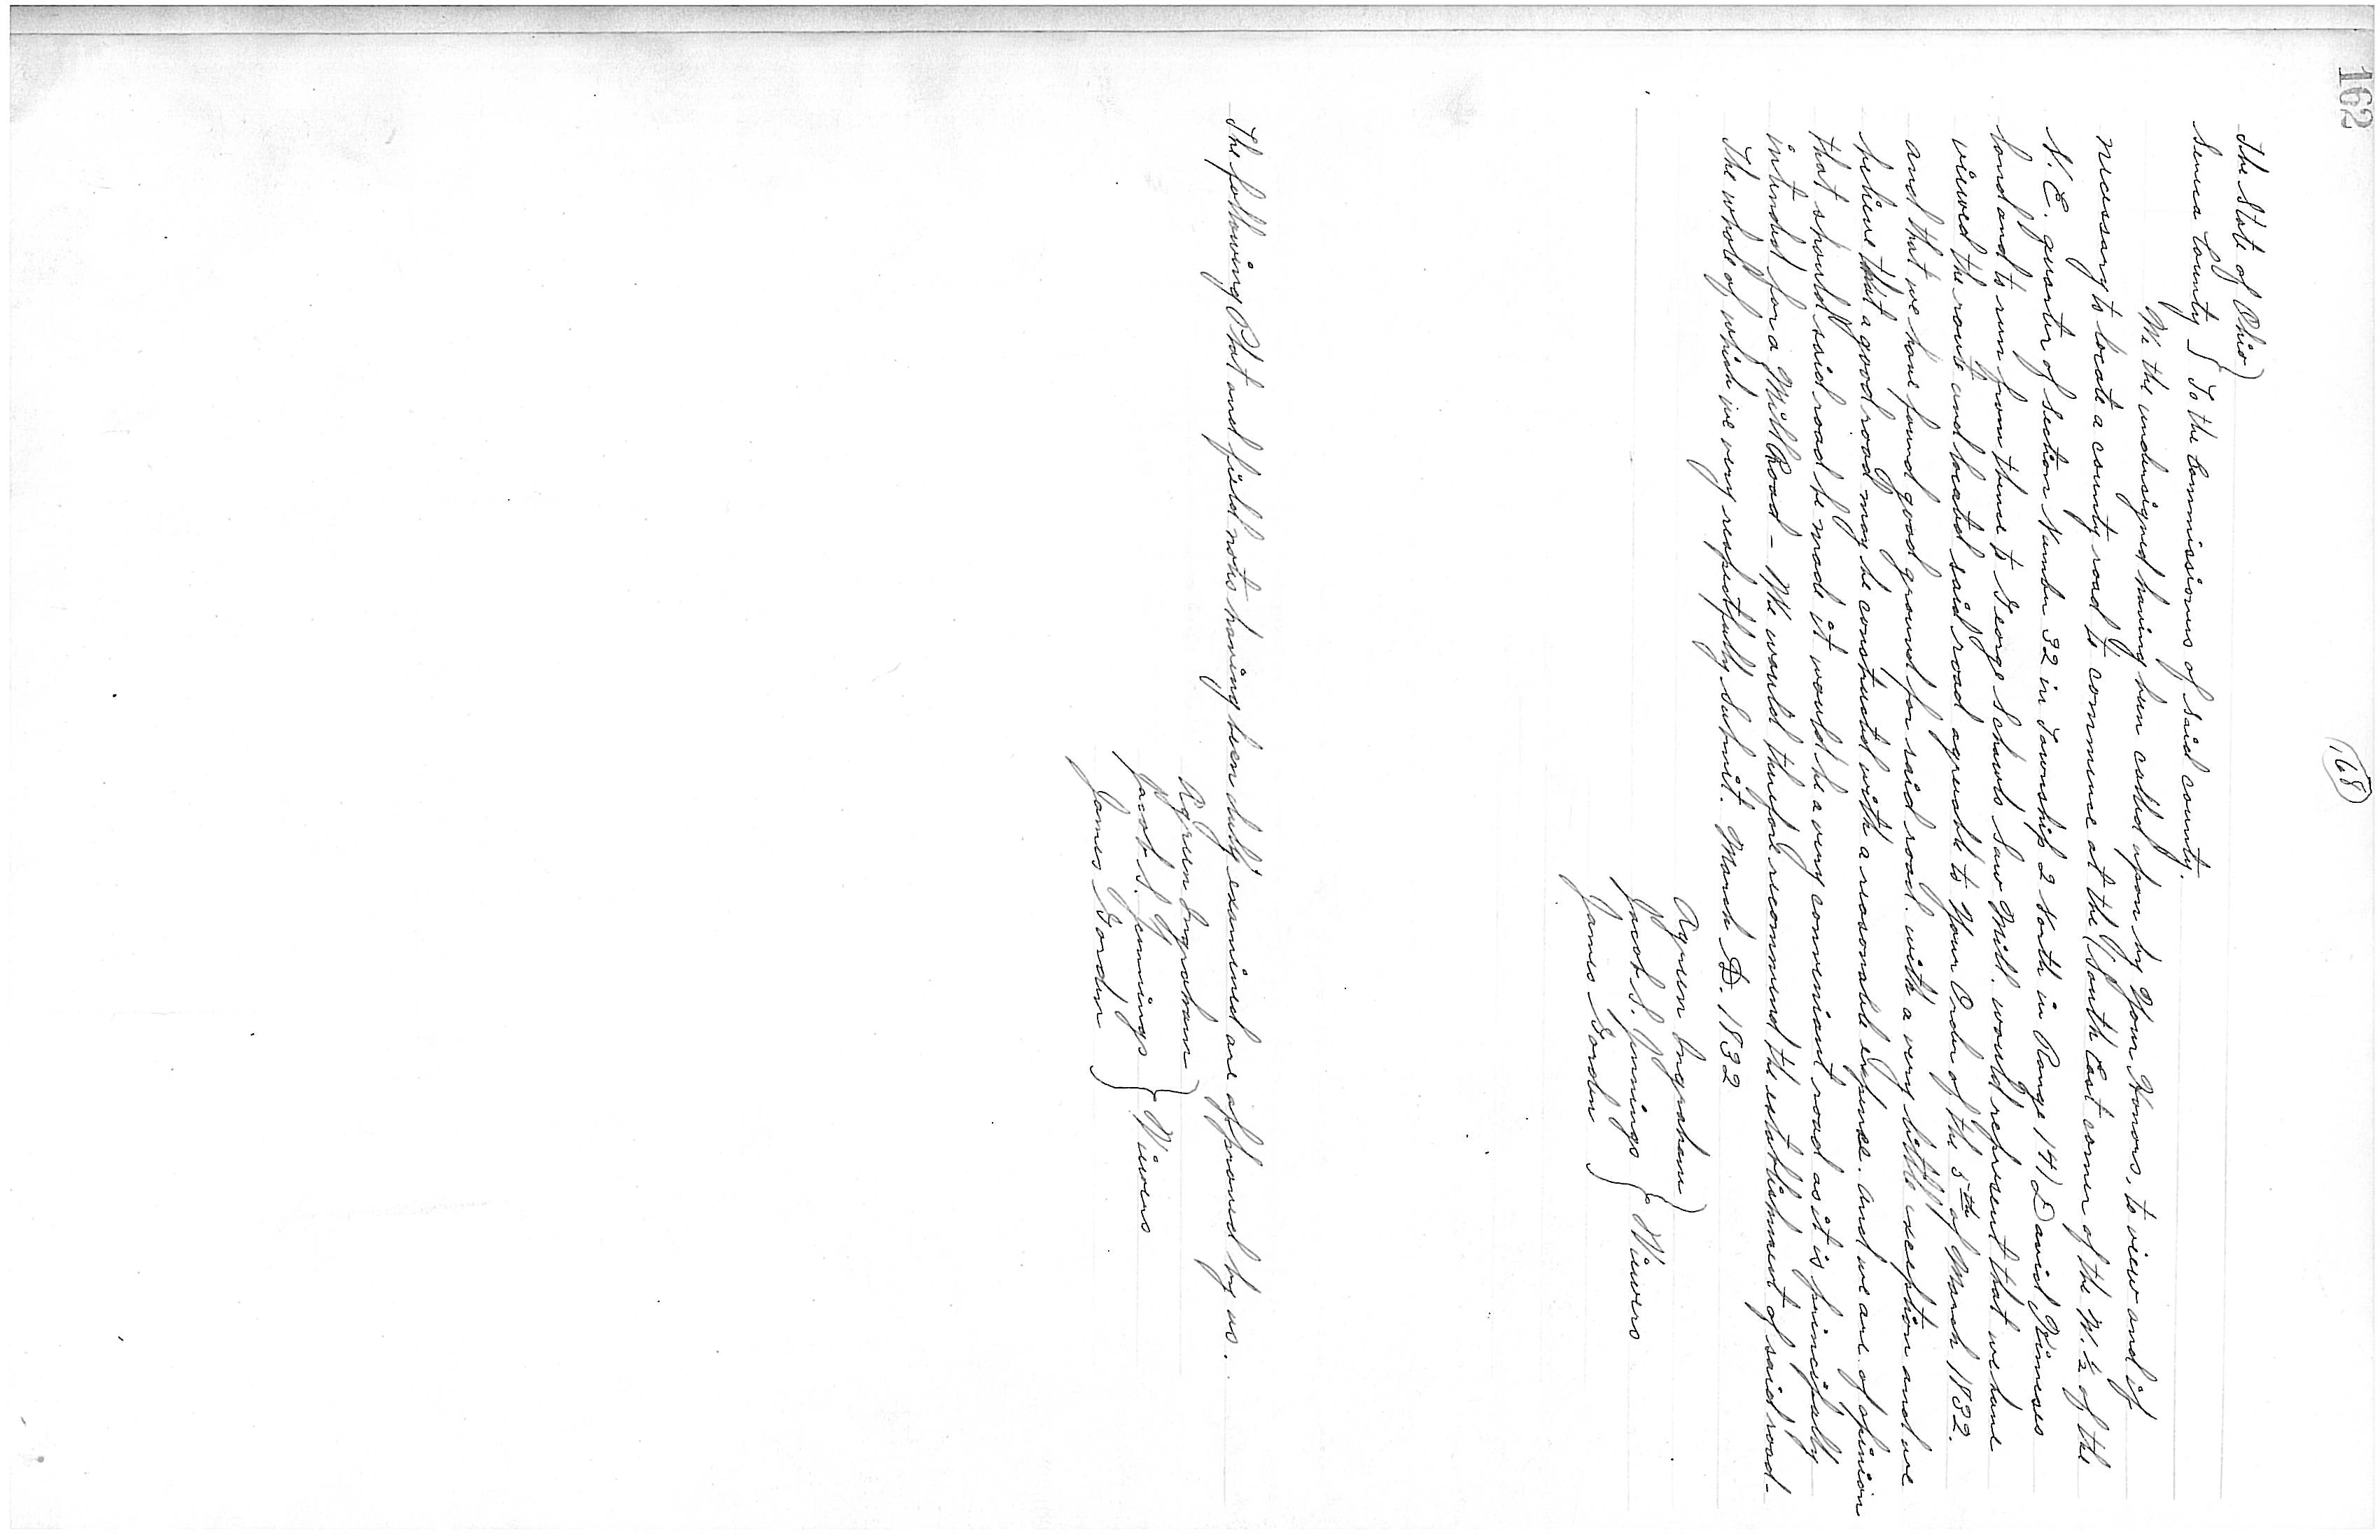 162
168
The State of Ohio )
Seneca County } To the Commissioners of said county.
We the undersigned having been called upon by Your Honors, to view and if
necessary to locate a county road to commence at the (South East corner of the W. 1/2 of the
N. E. quarter of section Number 32 in Township 2 North in Range 14) David
land and to run from thence to George Saw Mill. would represent that we have
viewed the route and located said road agreeable to Your Order of the 5th of March 1832.
and that we have found good ground for said road. with a very little exception and we
believe that a good road may be constructed with a reasonable expense. and we are of opinion
that should said road be made it would be a very convenient road as it is principally
intended for a Mill Road - We would therefore recommend the establishment of said road -
The whole of which we very respectfully submit. March D. 1832
Agreen Ingraham )
Jacob S. Jennings } Viewers
James Gordon
The following Plat and field notes having been duly examined are approved by us.
Agreen Ingraham )
Jacob S. Jennings } Viewers
James Gordon )